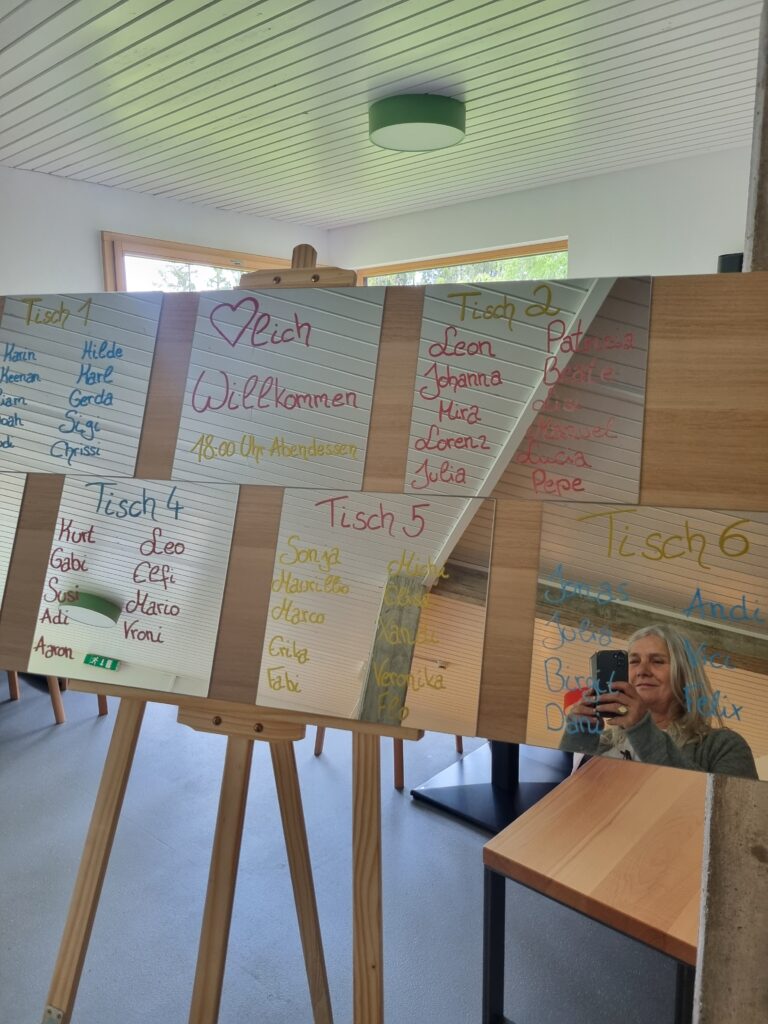 Tisch 1
Karin Hilde
Keenan Karl
Gerda
Sigi
Chrissi
♡lich
Willkommen
18:00 Uhr Abendessen
Tisch 2
Leon Patrizia
Johanna Beate
Mira Lisi
Lorenz Manuel
Julia Lucia
Pepe
Tisch 4
Kurt Leo
Gabi Elfi
Susi Mario
Adi Vroni
Aaron
Tisch 5
Sonja Michi
Maurizio
Marco Xandi
Erika Veronika
Fabi Flo
Tisch 6
Jonas Andi
Julia Vici
Birgit Felix
Dani